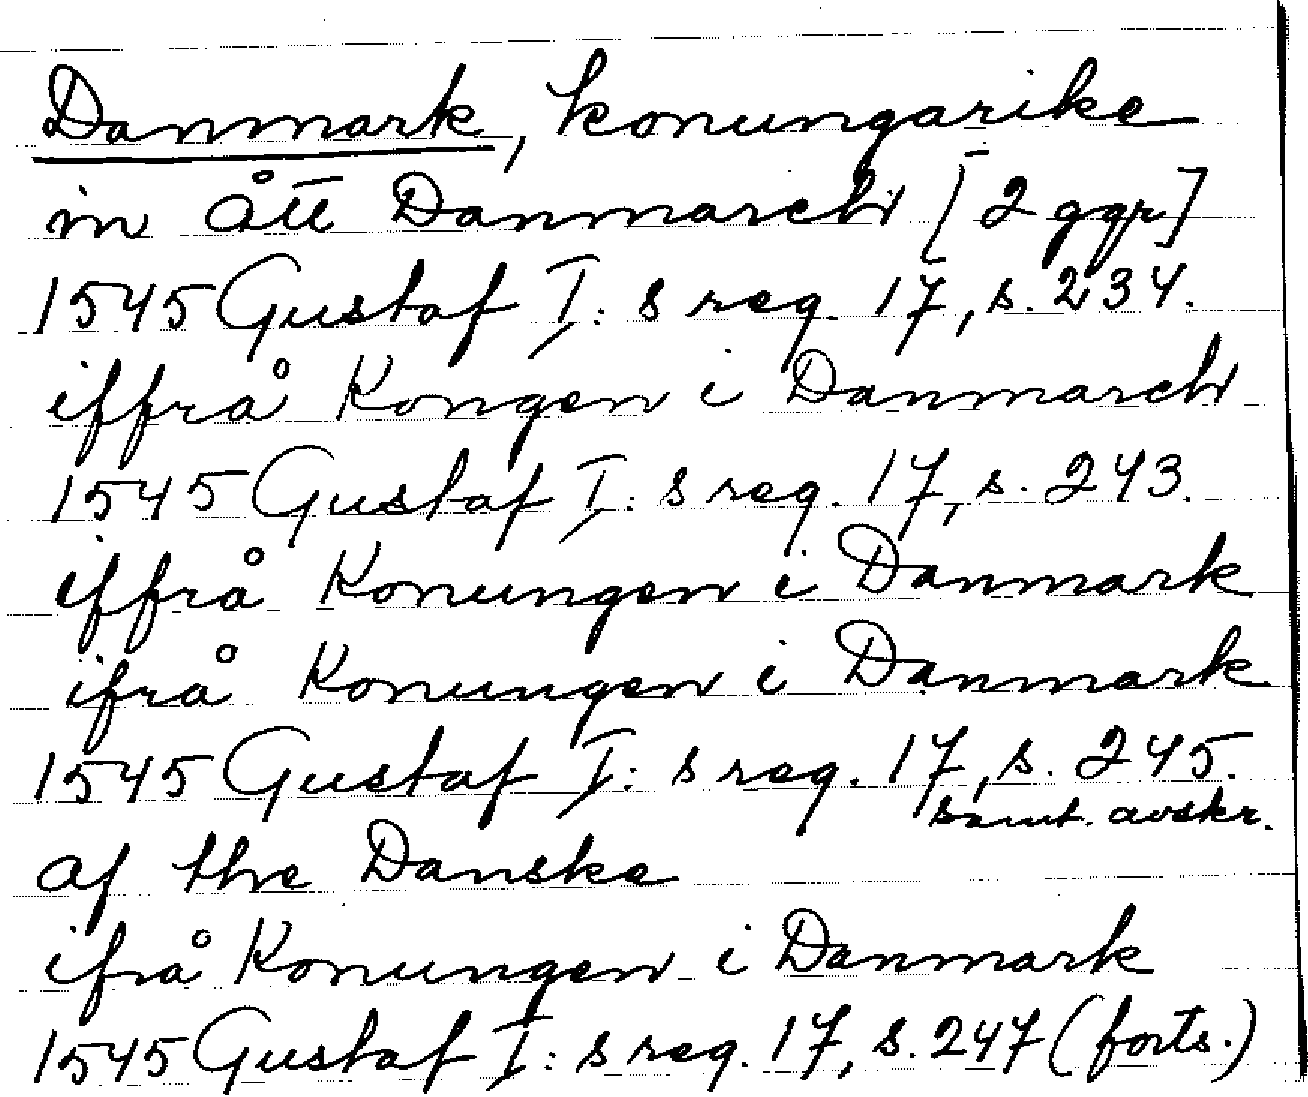 Danmark, konungarike
in ått Danmarch [2 ggr]
1545 Gustaf I:s reg. 17, s. 234.
iffrå Kongen i Danmarch
1545 Gustaf I:s reg. 17, s. 243.
iffrå Konungen i Danmark
ifrå Konungen i Danmark
1545 Gustaf I:s reg. 17, s. 245.
samt. avskr.
af the Danske
ifrå Konungen i Danmark
1545 Gustaf I:s reg. 17, s. 247 (forts.)